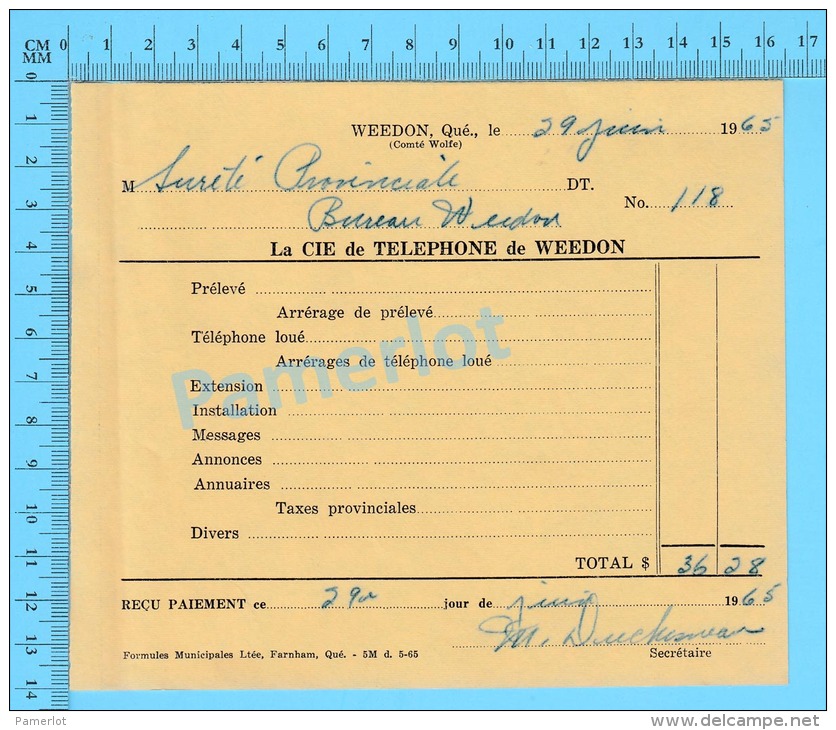 CM 0 1 2 3 4 5 6 7 8 9 10 11 12 13 14 15 16 17
MM
0 1 2 3 4 5 6 7 8 9 10 11 12 13 14
WEEDON, Qué., le 29 juin 1965
(Comté Wolfe)
M Sureté Provinciale DT.
No. 118
Bureau Weedon
La CIE de TELEPHONE de WEEDON
Prélevé
Arrérage de prélevé
Téléphone loué
Arrérages de téléphone loué
Pamerlot
Extension
Installation
Messages
Annonces
Annuaires
Taxes provinciales
Divers
TOTAL $ 36 28
REÇU PAIEMENT ce 29 jour de juin 1965
M.
Secrétaire
Formules Municipales Ltée, Farnham, Qué. - 5M d. 5-65
Pamerlot
www.delcampe.net